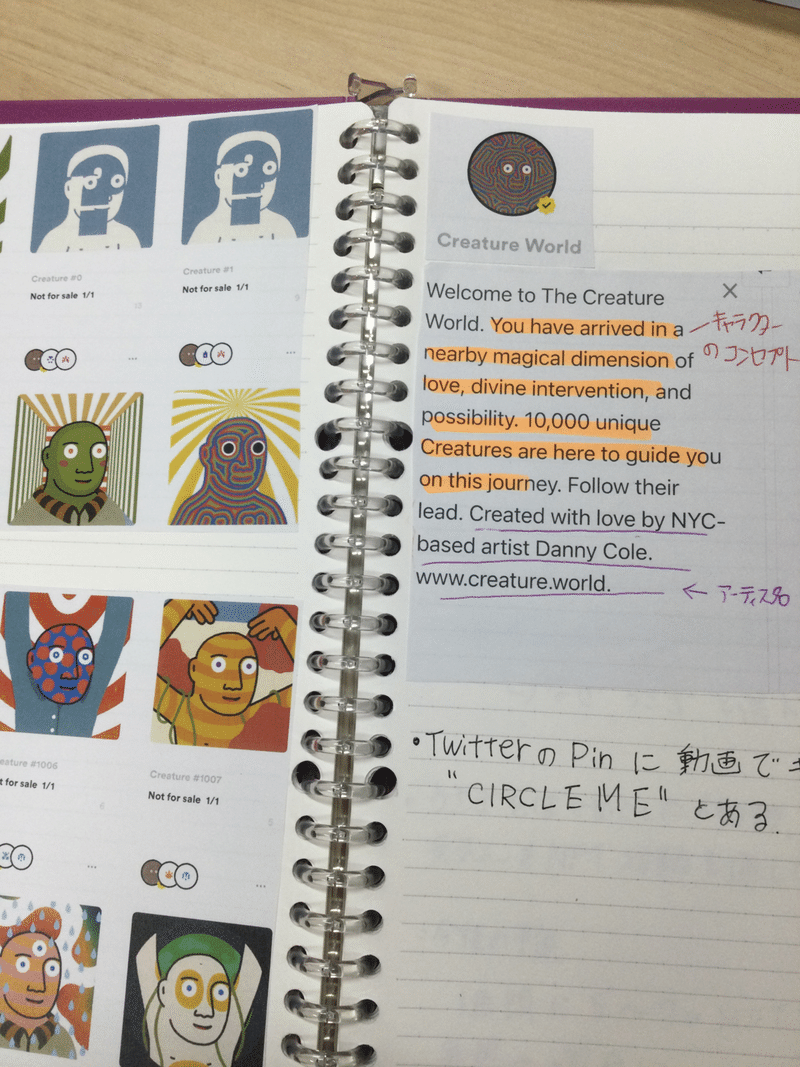 Creature #0
Not for sale 1/1
Creature #1
Not for sale 1/1
eature #1006
t for sale 1/1
Creature #1007
Not for sale 1/1
Creature World
Welcome to The Creature
World. You have arrived in a
nearby magical dimension of
love, divine intervention, and
possibility. 10,000 unique
Creatures are here to guide you
on this journey. Follow their
lead. Created with love by NYC-
based artist Danny Cole.
www.creature.world.
キャラクター
のコンセプト
← アーティスト名
•TwitterのPinに動画で
"CIRCLE ME"とある.